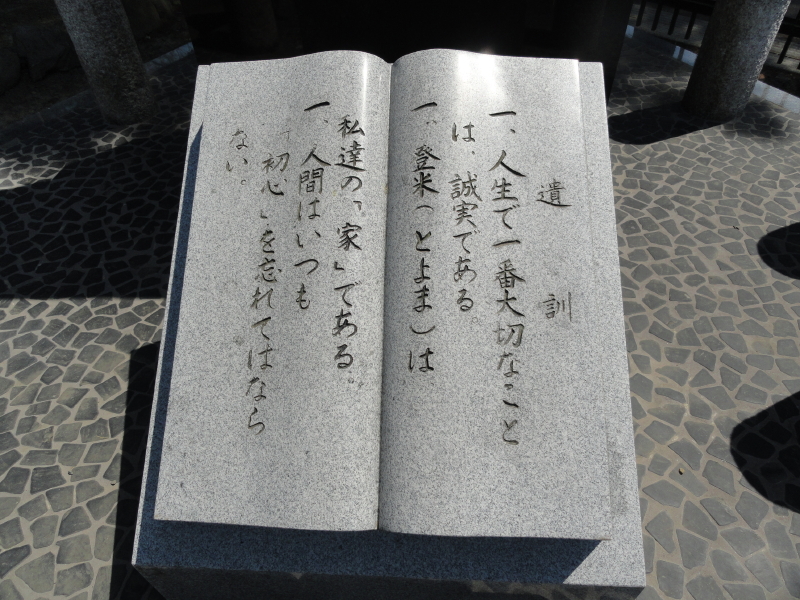 遺訓
一、人生で一番大切なこと
は、誠実である
一、登米(とよま)は
私達の「家」である。
一、人間はいつも
「初心」を忘れてはなら
ない。